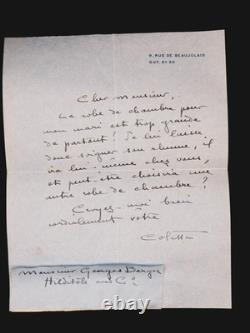 9, RUE DE BEAUJOLAIS
GUT. 81 80
Cher Monsieur,
La robe de chambre pour
mon mari est trop grande
de partout! Je lui laisse
donc soigner son rhume, il
ira lui-même chez vous,
et peut-être choisira une
autre robe de chambre!
Croyez-moi bien
cordialement vôtre
Colette
Monsieur Georges
Hilditch and C°